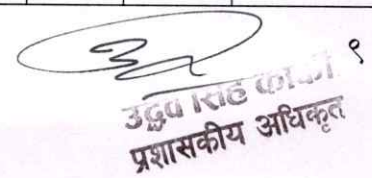 १
उद्धव सिंह कार्की
प्रशासकीय अधिकृत